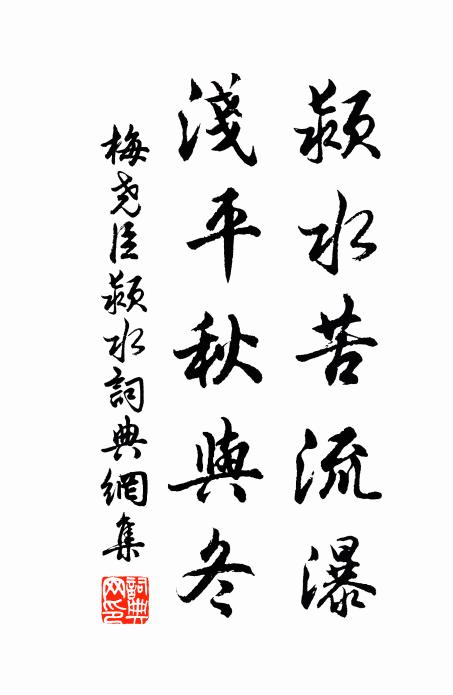 潁水苦流瀑
淺平秋與冬
梅堯臣潁水詞典網集
詞典網印